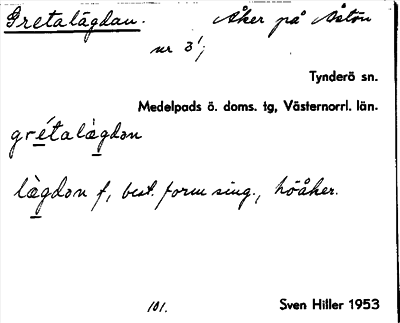 Gretalägdan. Åker på Åstön
nr 3¹,
Tynderö sn.
Medelpads ö. doms. tg, Västernorrl. län.
gré̱talàg̱dən
làg̱dən f, best. form sing., höåker.
101.
Sven Hiller 1953